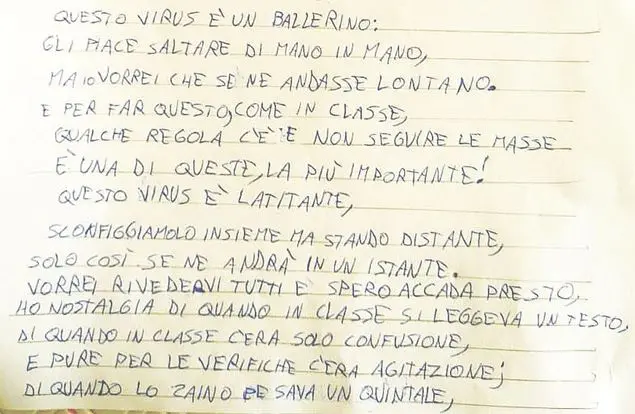 QUESTO VIRUS È UN BALLERINO:
GLI PIACE SALTARE DI MANO IN MANO,
MA IO VORREI CHE SE NE ANDASSE LONTANO.
E PER FAR QUESTO, COME IN CLASSE,
QUALCHE REGOLA C'È E NON SEGUIRE LE MASSE
È UNA DI QUESTE, LA PIÙ IMPORTANTE!
QUESTO VIRUS È LATITANTE,
SCONFIGGIAMOLO INSIEME MA STANDO DISTANTE,
SOLO COSÌ SE NE ANDRÀ IN UN ISTANTE.
VORREI RIVEDERVI TUTTI E SPERO ACCADA PRESTO,
HO NOSTALGIA DI QUANDO IN CLASSE SI LEGGEVA UN TESTO,
DI QUANDO IN CLASSE C'ERA SOLO CONFUSIONE,
E PURE PER LE VERIFICHE C'ERA AGITAZIONE;
DI QUANDO LO ZAINO PE SAVA UN QUINTALE,